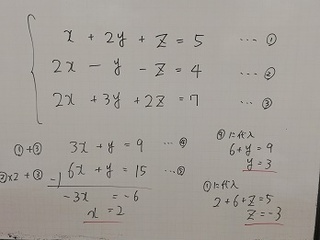 x + 2y + z = 5 … ①
2x - y - z = 4 … ②
2x + 3y + 2z = 7 … ③
①+② 3x + y = 9 … ④
②×2 + ③ -) 6x + y = 15 … ⑤
-3x = -6
x = 2
④に代入
6 + y = 9
y = 3
①に代入
2 + 6 + z = 5
z = -3